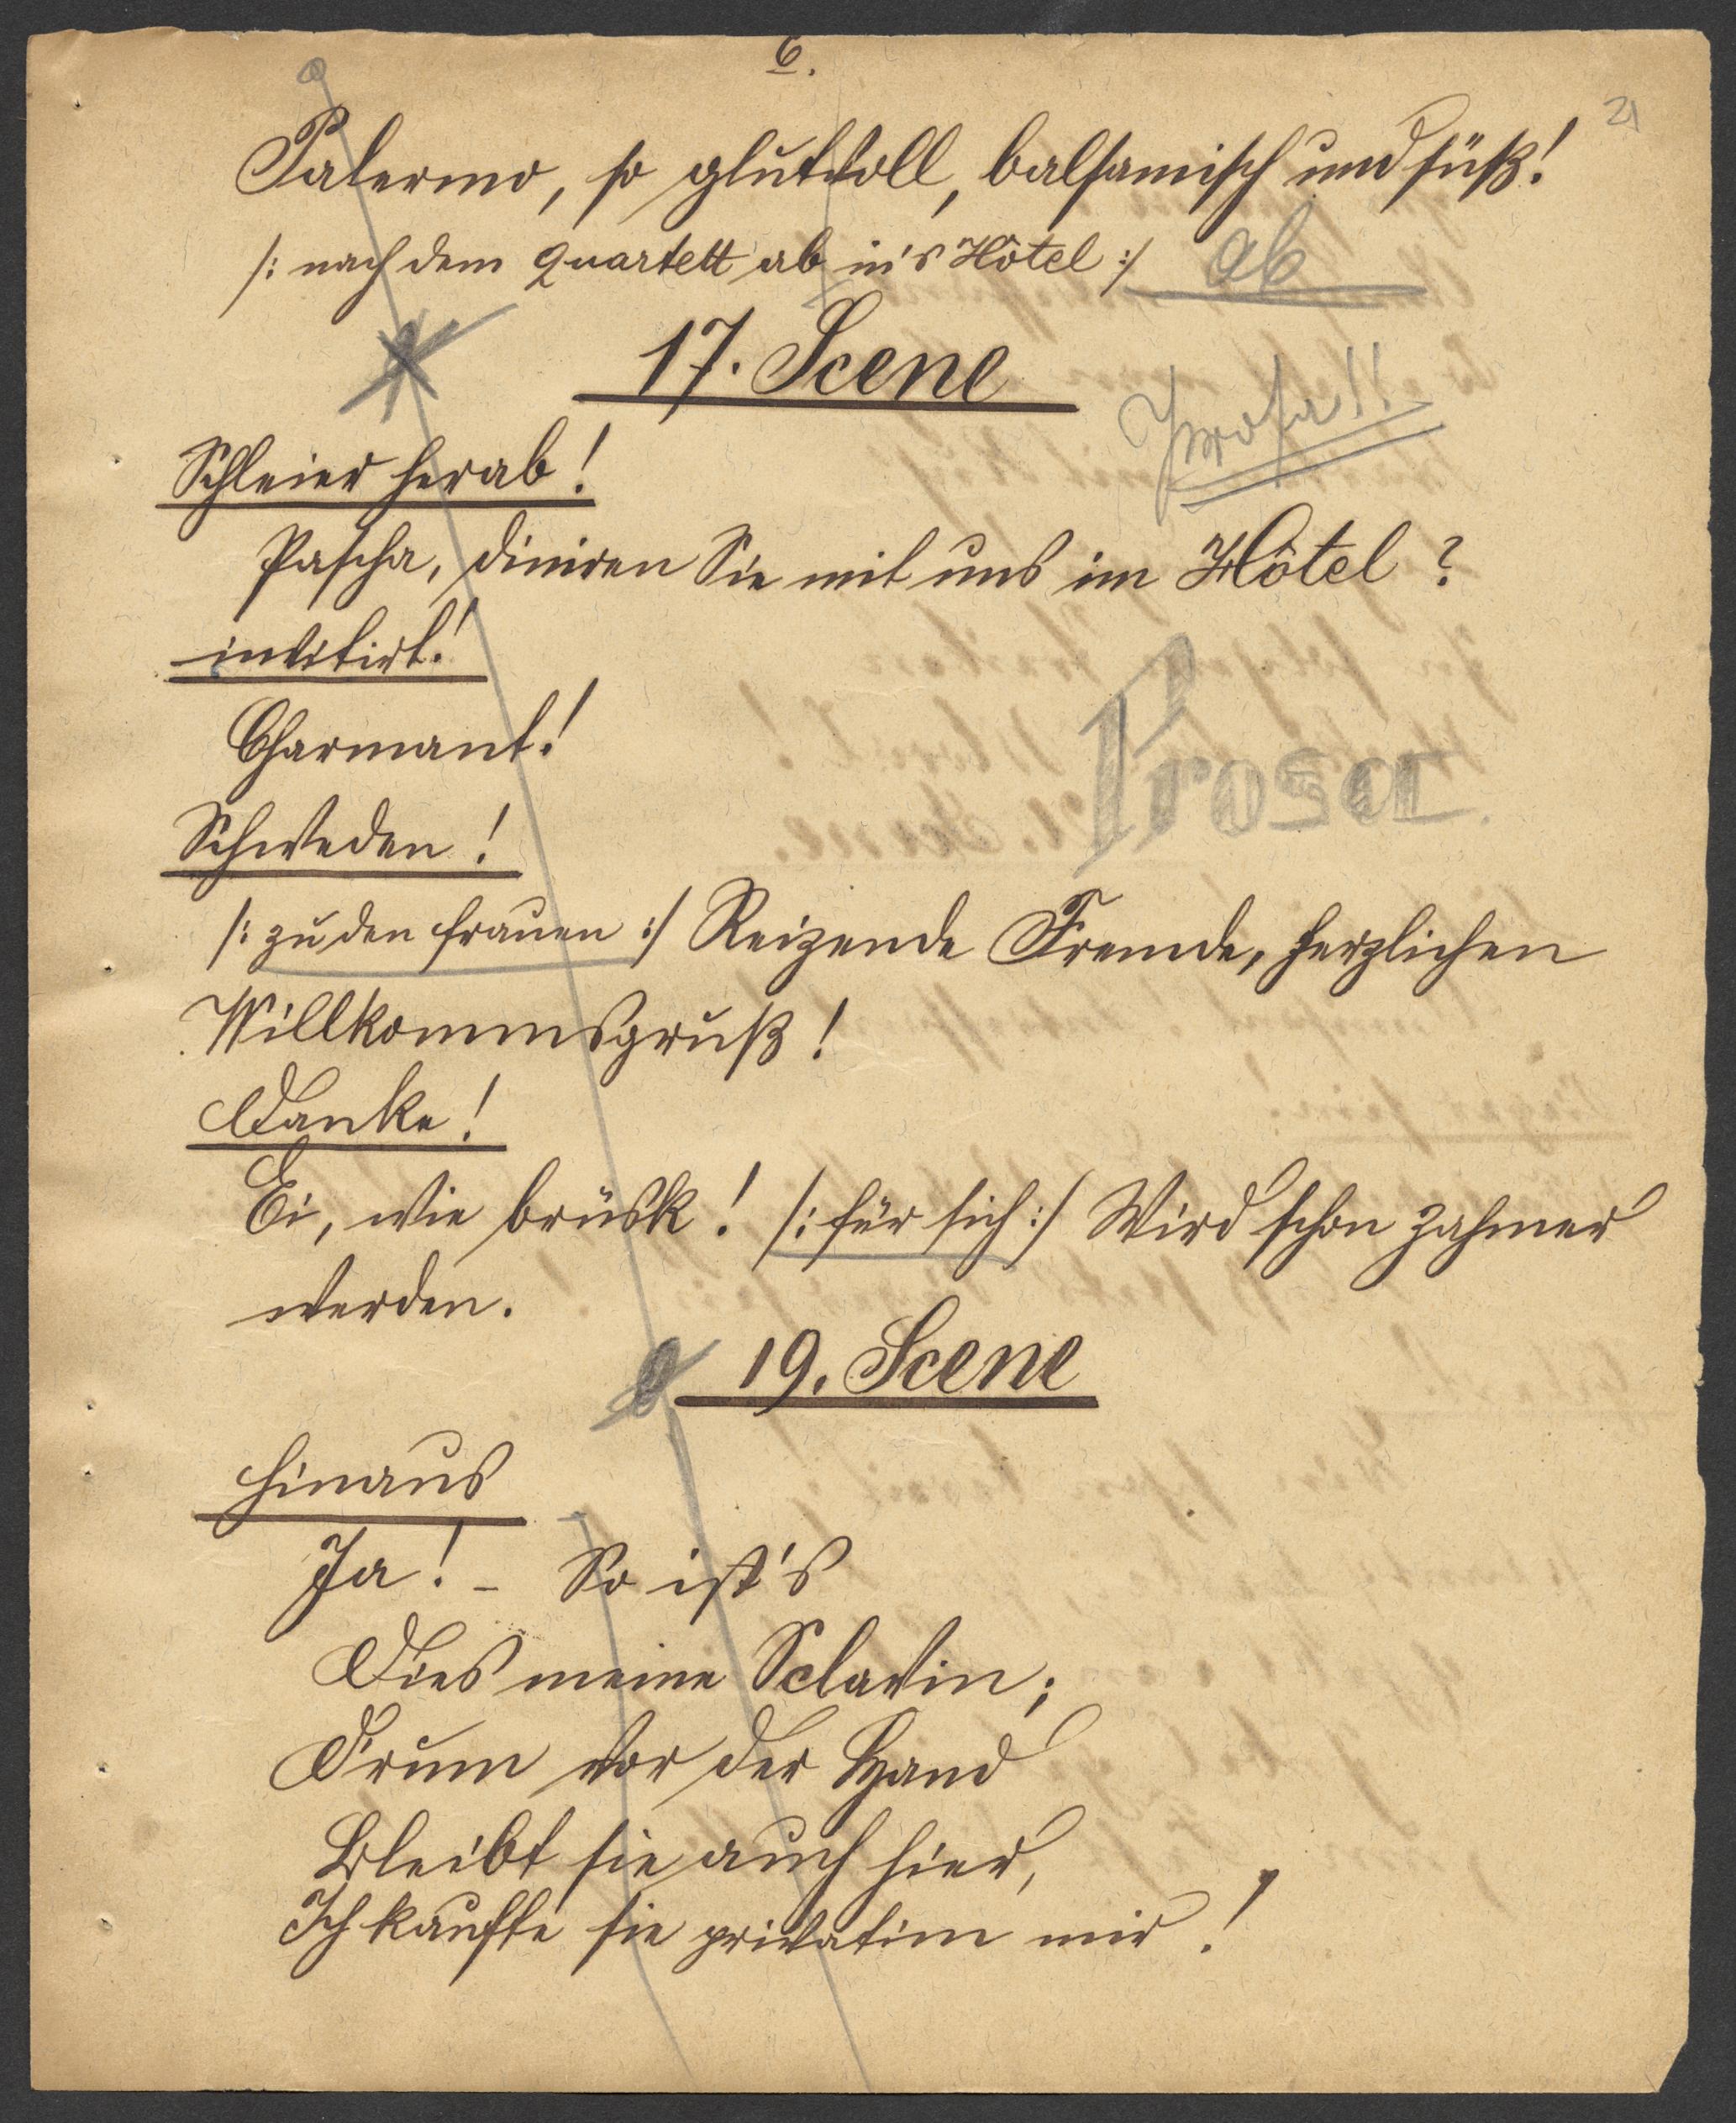 6.
21
Palermo, so glutvoll, balsamisch und süß!
/: nach dem Quartett ab in's Hôtel :/ ab
17. Scene
Prosa!!
Schleier herab!
Pascha, diniren Sie mit uns im Hôtel?
invitirt!
Charmant!
Prosa.
Schweden!
/: zu den Frauen :/ Reizende Fremde, herzlichen
Willkommsgruß!
Danke!
Ei, wie brüsk! /: für sich :/ Wird schon zahmer
werden.
19. Scene
hinaus
Ja! – So ist's
Dies meine Sclavin;
Drum vor der Hand
Bleibt sie auch hier,
Ich kaufte sie privatim mir!